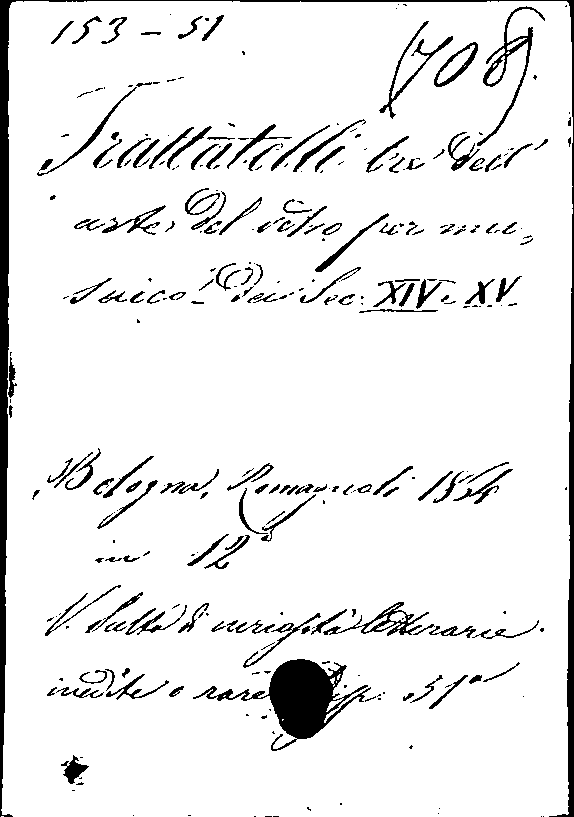 153 - 51
(708).
Trattatelli tre dell'
arte del vetro per mu-
saico dei Sec. XIV e XV
Bologna, Romagnoli 1864
in 12°
V. Scelta di curiosità letterarie
inedite o rare disp. 51ª